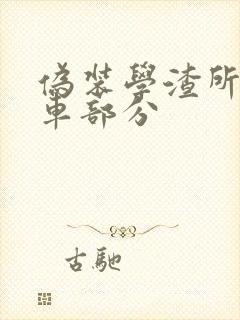 偽裝學渣所
車部分
古馳